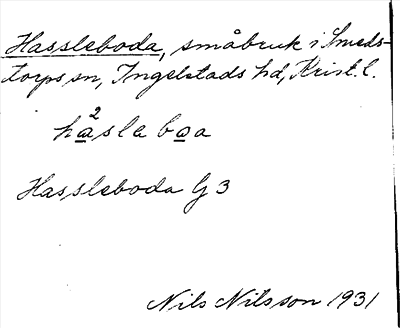 Hassleboda, småbruk i Smeds-
torps sn, Ingelstads hd, Krist. l.
ha²sle boa
Hassleboda G 3
Nils Nilsson 1931